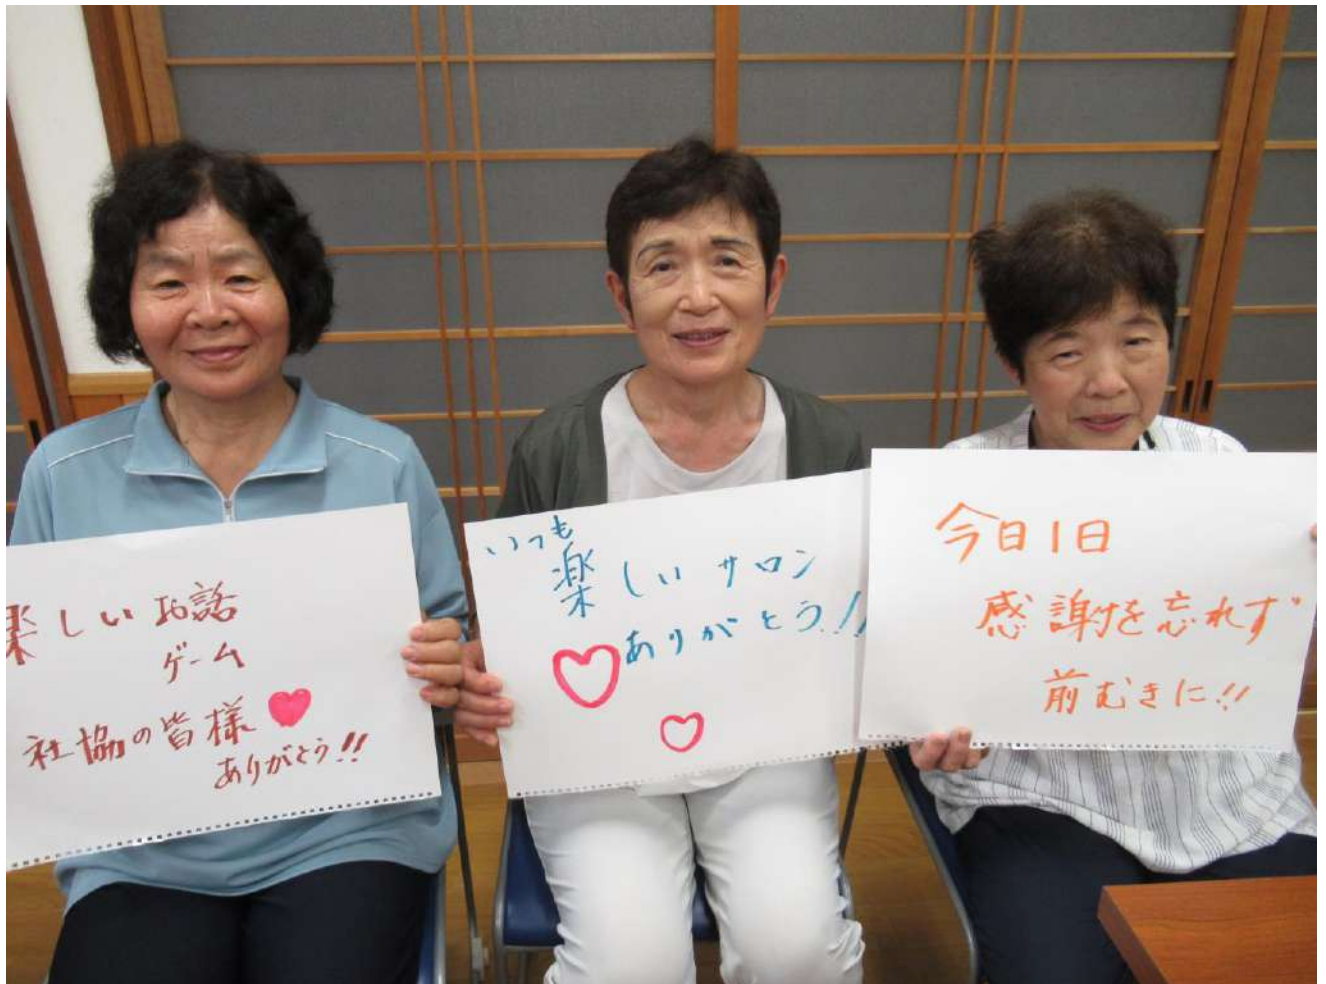 楽しいお話
ゲーム
社協の皆様
ありがとう!!
いつも
楽しいサロン
ありがとう!!
今日1日
感謝を忘れず
前むきに!!